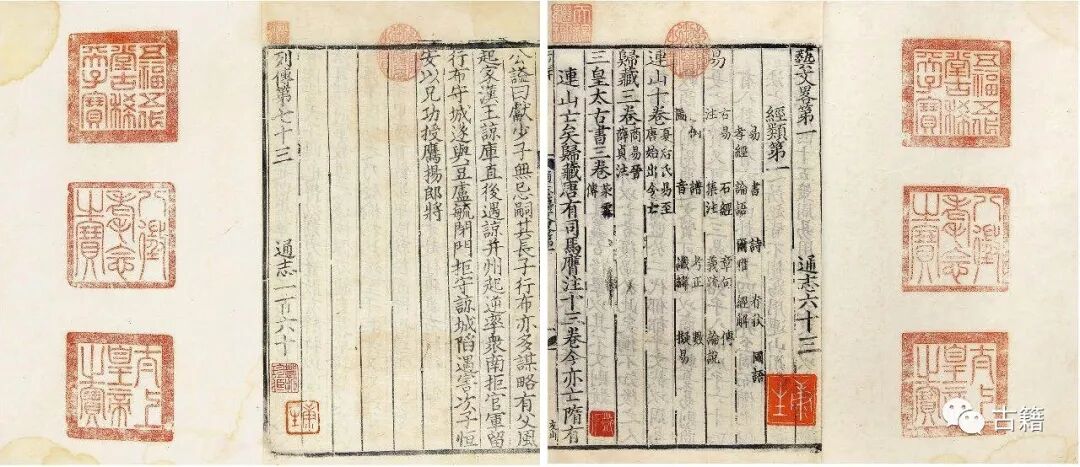 五福五代堂古稀天子寶
八徵耄念之寶
太上皇帝之寶
藝文畧第一 通志六十三
經類第一
易 書 詩 春秋 國語
孝經 論語 爾雅 經解
易
古易 石經 章句 傳
注 集注 義疏 論說
例 譜 考正 數
圖 音 讖緯 擬易
連山十卷 夏后氏易至
唐始出今亡
歸藏三卷 商易晉
薛貞注
三皇太古書三卷
連山亡矣歸藏唐有司馬膺注十三卷今亦亡隋有
公諡曰獻少子無忌嗣其長子行布亦多謀略有父風
起家漢王諒庫直後遇諒并州起逆率衆南拒官軍留
行布守城遂與豆盧毓閉門拒守諒城陷遇害次子恒
安以兄功授鷹揚郎將
列傳第七十三 通志一百六十
五福五代堂古稀天子寶
八徵耄念之寶
太上皇帝之寶
古籍